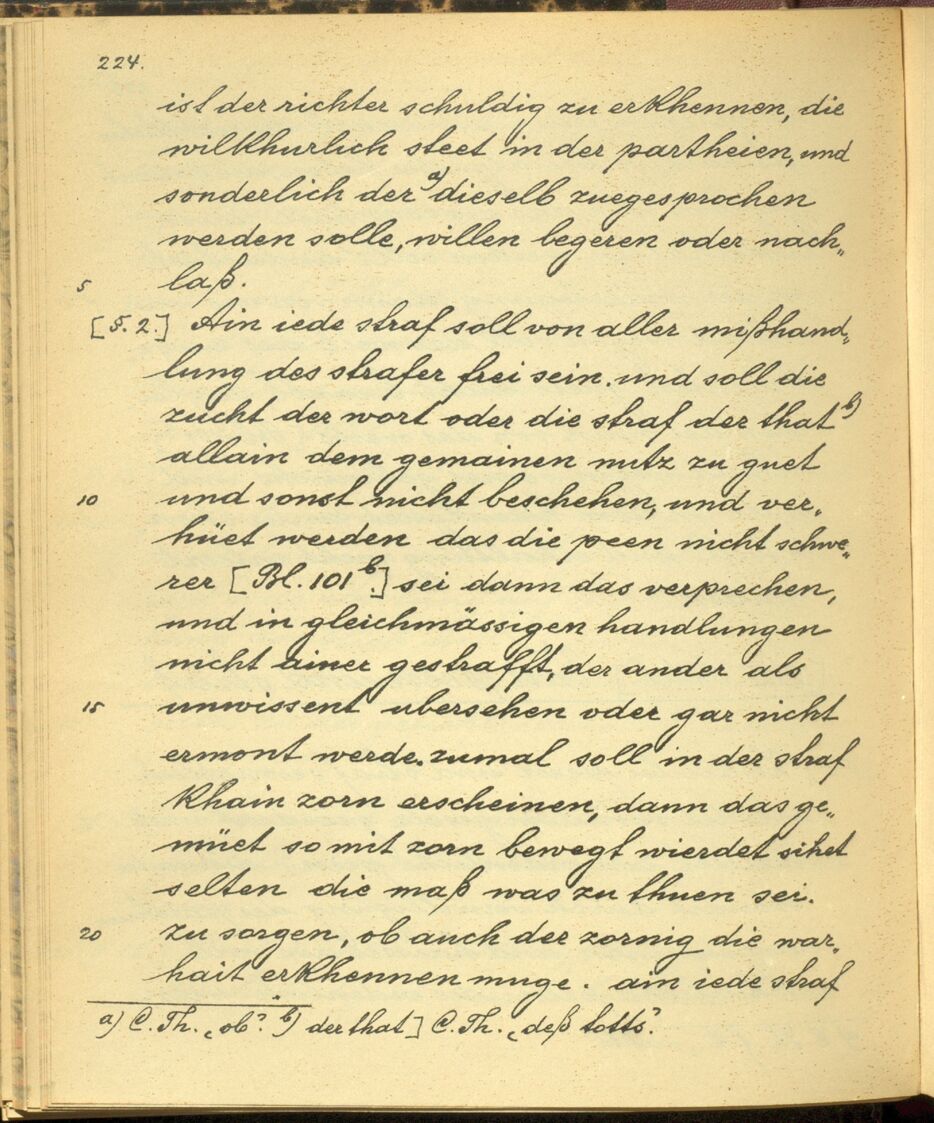 224.
ist der richter schuldig zu erkhennen, die
wilkhurlich steet in der partheien, und
sonderlich der a) dieselb zuegesprochen
werden solle, willen begeren oder nach„
5 laß.
[§. 2.] Ain iede straf soll von aller mißhand„
lung des strafer frei sein. und soll die
zucht der wort oder die straf der that b)
allain dem gemainen nutz zu guet
10 und sonst nicht beschehen, und ver„
hüet werden das die peen nicht schwe„
rer [Bl. 101 b.] sei dann das verprechen,
und in gleichmässigen handlungen
nicht ainer gestrafft, der ander als
15 unwissent ubersehen oder gar nicht
ermont werde. zumal soll in der straf
khain zorn erscheinen, dann das ge„
müet so mit zorn bewegt wierdet sihet
selten die maß was zu thuen sei.
20 zu sorgen, ob auch der zornig die war„
hait erkhennen muge. ain iede straf
a) C. Th. „ob“. b) der that] C. Th. „deß totts“.